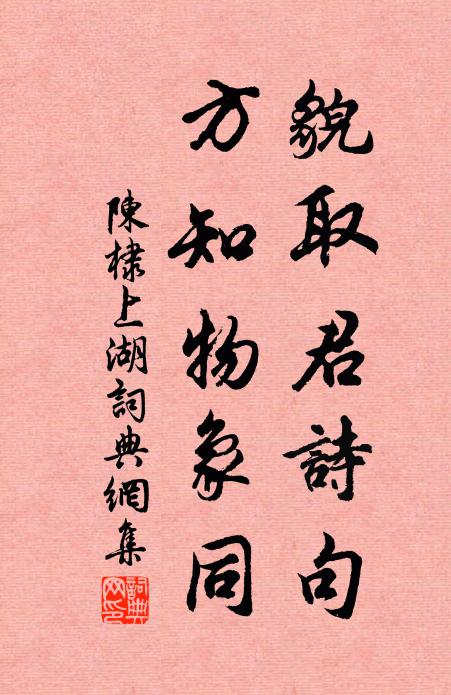 貌取君詩句
方知物象同
陳棣上湖詞典網集
詞典網印